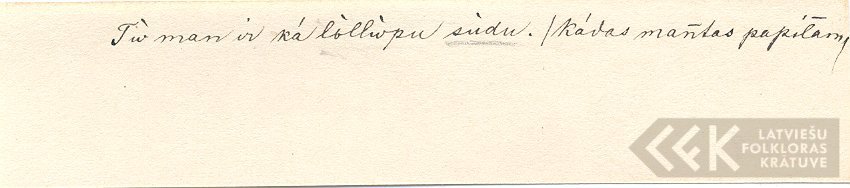 Tìv man ir ká lòllìopu sùdu. /Kádas mañtas papílam/
LATVIEŠU
FOLKLORAS
KRĀTUVE